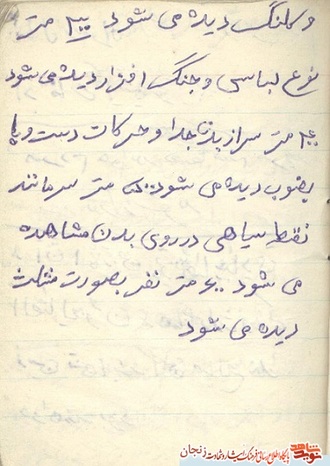 و کلنگ دیده می شود ۳۰۰ متر
نوع لباسی و جنگ افزار دیده می شود
۴۰۰ متر سر از بدن جدا و حرکات دست و پا
بخوب دیده می شود ۵۰۰ متر سر مانند
نقطه سیاهی در روی بدن مشاهده
می شود ۶۰۰ متر نفر بصورت مثلث
دیده می شود
نوید شاهد
پایگاه اطلاع رسانی فرهنگ ایثار و شهادت زنجان